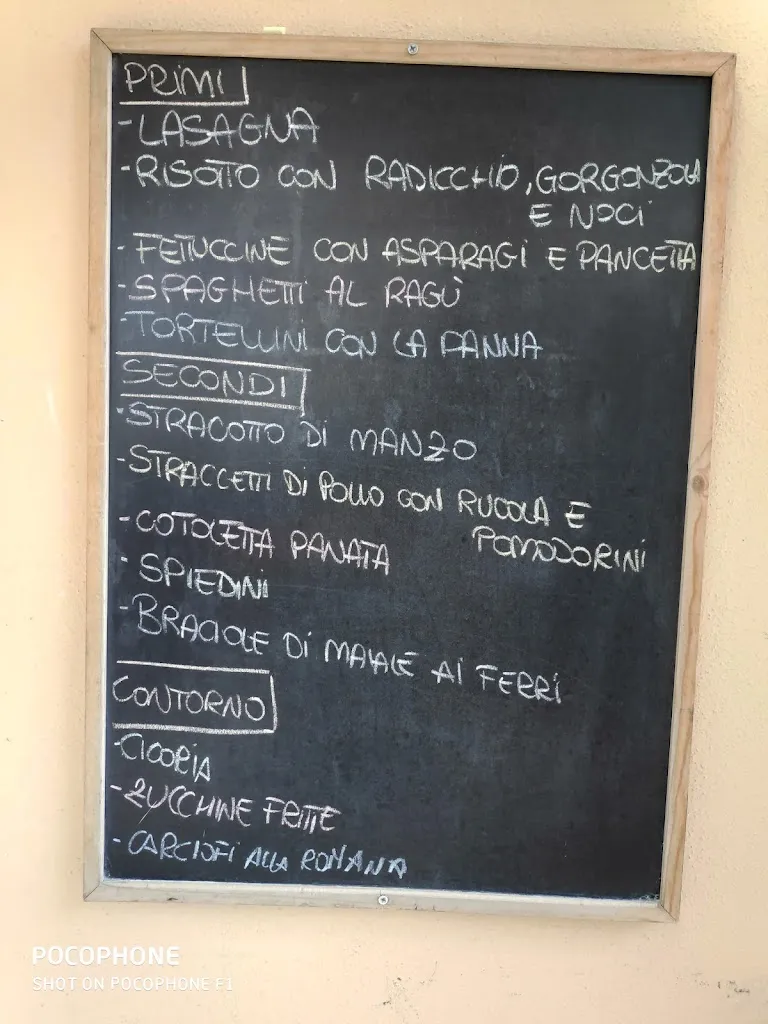 PRIMI
-LASAGNA
-RISOTTO CON RADICCHIO, GORGONZOLA
E NOCI
-FETTUCCINE CON ASPARAGI E PANCETTA
-SPAGHETTI AL RAGÙ
-TORTELLINI CON LA PANNA
SECONDI
-STRACOTTO DI MANZO
-STRACCETTI DI POLLO CON RUCOLA E
POMODORINI
-COTOLETTA PANATA
-SPIEDINI
-BRACIOLE DI MAIALE AI FERRI
CONTORNO
-CICORIA
-ZUCCHINE FRITTE
-CARCIOFI ALLA ROMANA
POCOPHONE
SHOT ON POCOPHONE F1